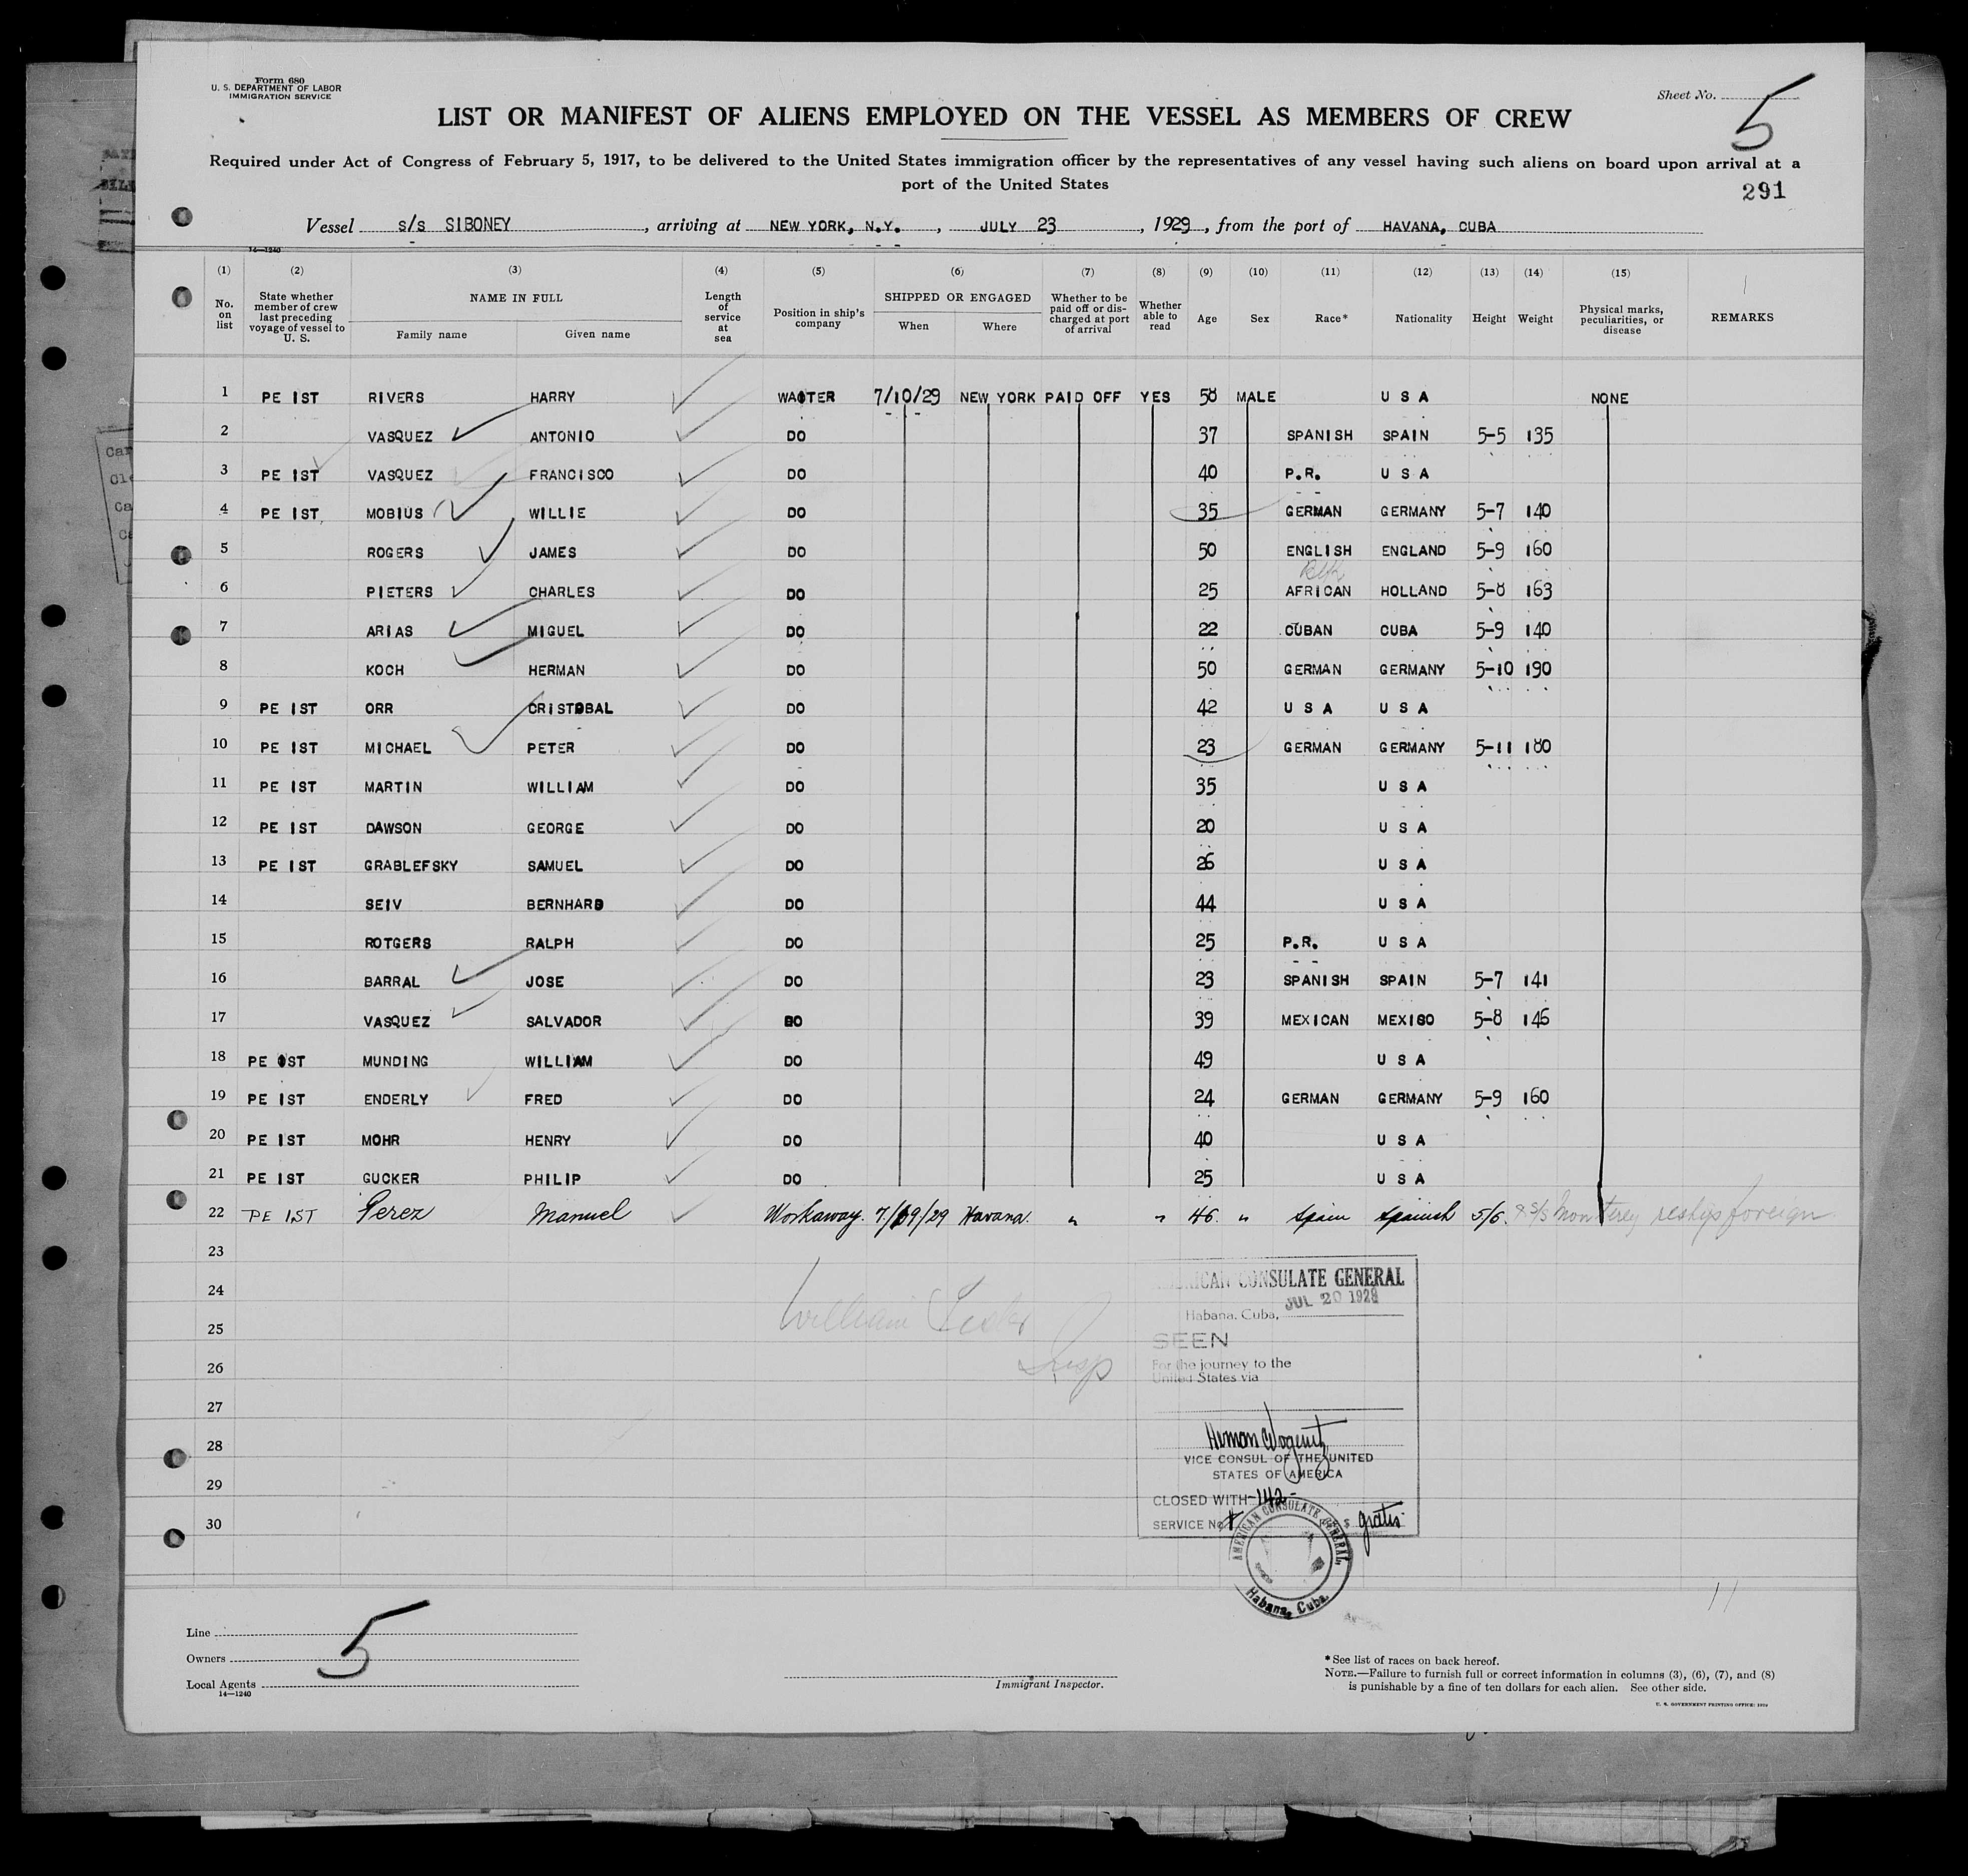 Form 680
U. S. DEPARTMENT OF LABOR
IMMIGRATION SERVICE
Sheet No. 5
LIST OR MANIFEST OF ALIENS EMPLOYED ON THE VESSEL AS MEMBERS OF CREW
Required under Act of Congress of February 5, 1917, to be delivered to the United States immigration officer by the representatives of any vessel having such aliens on board upon arrival at a
port of the United States
291
Vessel s/s SIBONEY, arriving at NEW YORK, N.Y., JULY 23, 1929, from the port of HAVANA, CUBA
14—1240
(1) (2) (3) (4) (5) (6) (7) (8) (9) (10) (11) (12) (13) (14) (15)
No. on list State whether member of crew last preceding voyage of vessel to U. S. NAME IN FULL Family name Given name Length of service at sea Position in ship's company SHIPPED OR ENGAGED When Where Whether to be paid off or discharged at port of arrival Whether able to read Age Sex Race* Nationality Height Weight Physical marks, peculiarities, or disease REMARKS
1 PE IST RIVERS HARRY WAITER 7/10/29 NEW YORK PAID OFF YES 58 MALE U S A NONE
2 VASQUEZ ANTONIO DO 37 SPANISH SPAIN 5-5 135
3 PE IST VASQUEZ FRANCISCO DO 40 P.R. U S A
4 PE IST MOBIUS WILLIE DO 35 GERMAN GERMANY 5-7 140
5 ROGERS JAMES DO 50 ENGLISH ENGLAND 5-9 160
6 PIETERS CHARLES DO 25 AFRICAN HOLLAND 5-8 163
7 ARIAS MIGUEL DO 22 CUBAN CUBA 5-9 140
8 KOCH HERMAN DO 50 GERMAN GERMANY 5-10 190
9 PE IST ORR CRISTOBAL DO 42 U S A U S A
10 PE IST MICHAEL PETER DO 23 GERMAN GERMANY 5-11 180
11 PE IST MARTIN WILLIAM DO 35 U S A
12 PE IST DAWSON GEORGE DO 20 U S A
13 PE IST GRABLEFSKY SAMUEL DO 26 U S A
14 SEIV BERNHARD DO 44 U S A
15 ROTGERS RALPH DO 25 P.R. U S A
16 BARRAL JOSE DO 23 SPANISH SPAIN 5-7 141
17 VASQUEZ SALVADOR DO 39 MEXICAN MEXISO 5-8 146
18 PE IST MUNDING WILLIAM DO 49 U S A
19 PE IST ENDERLY FRED DO 24 GERMAN GERMANY 5-9 160
20 PE IST MOHR HENRY DO 40 U S A
21 PE IST GUCKER PHILIP DO 25 U S A
22 PE IST Perez Manuel Workaway. 7/19/29 Havana. " " 46. " Spain Spanish 5/6. S/S Monterey reships foreign
23
24
25
26
27
28
29
30
William
Insp
AMERICAN CONSULATE GENERAL
Habana, Cuba, JUL 20 1929
SEEN
For the journey to the
United States via
VICE CONSUL OF THE UNITED
STATES OF AMERICA
CLOSED WITH -142-
SERVICE No gratis
AMERICAN CONSULATE GENERAL,
Habana, Cuba.
11
Line
Owners
Local Agents
14—1240
5
Immigrant Inspector.
* See list of races on back hereof.
NOTE.—Failure to furnish full or correct information in columns (3), (6), (7), and (8)
is punishable by a fine of ten dollars for each alien. See other side.
U. S. GOVERNMENT PRINTING OFFICE: 1929